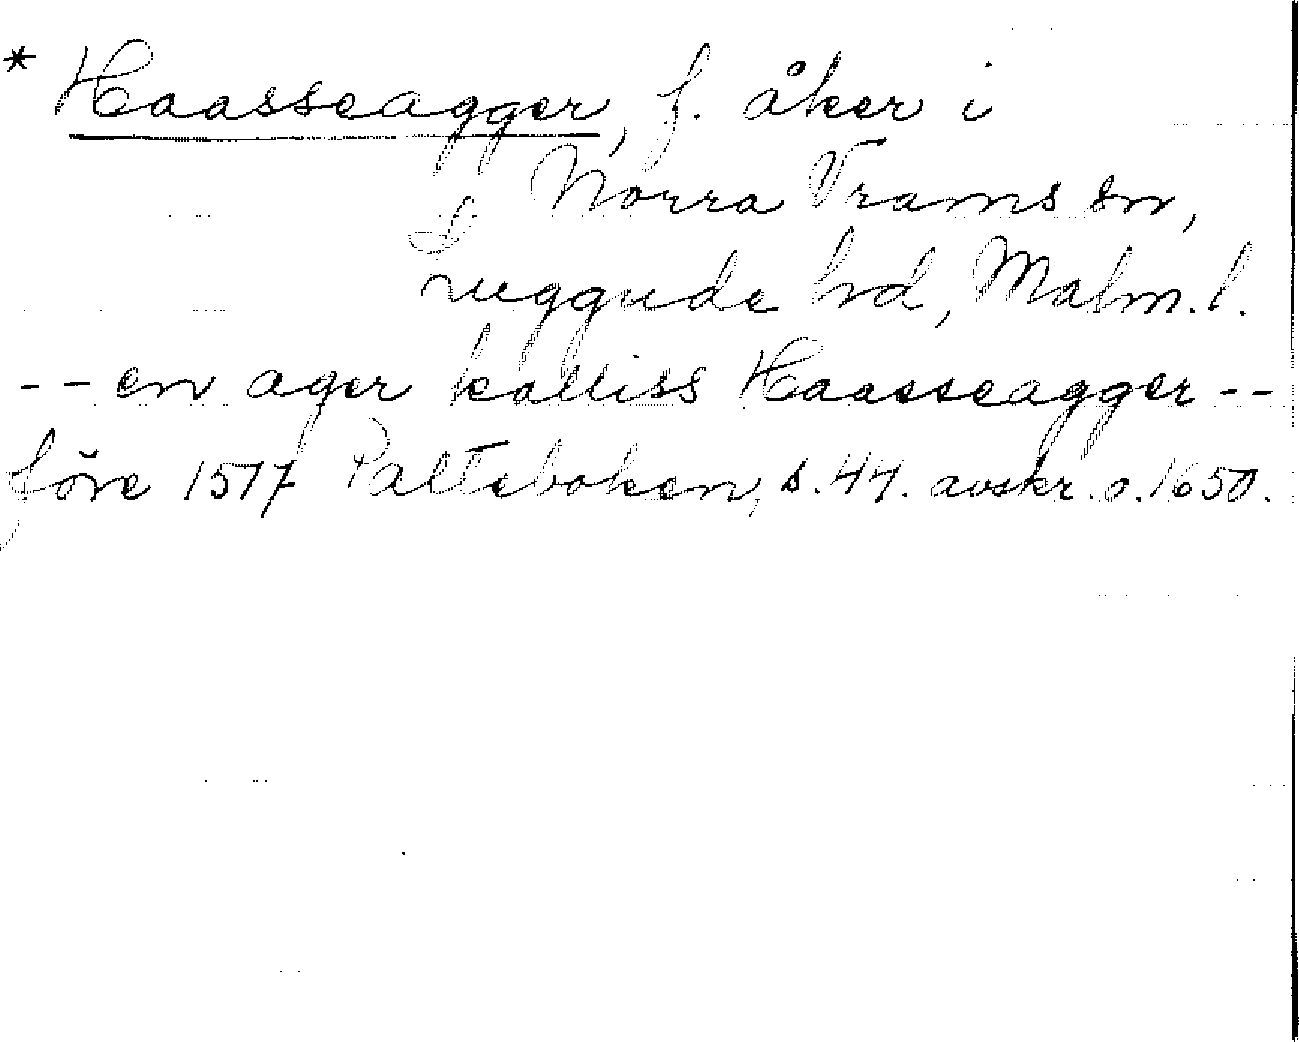 * Haasseagger, f. åker i
Norra Vrams sn,
Luggude hd, Malm. l.
-- en ager kalliss Haasseagger --
före 1517 Palteboken, s. 44. avskr. o. 1650.